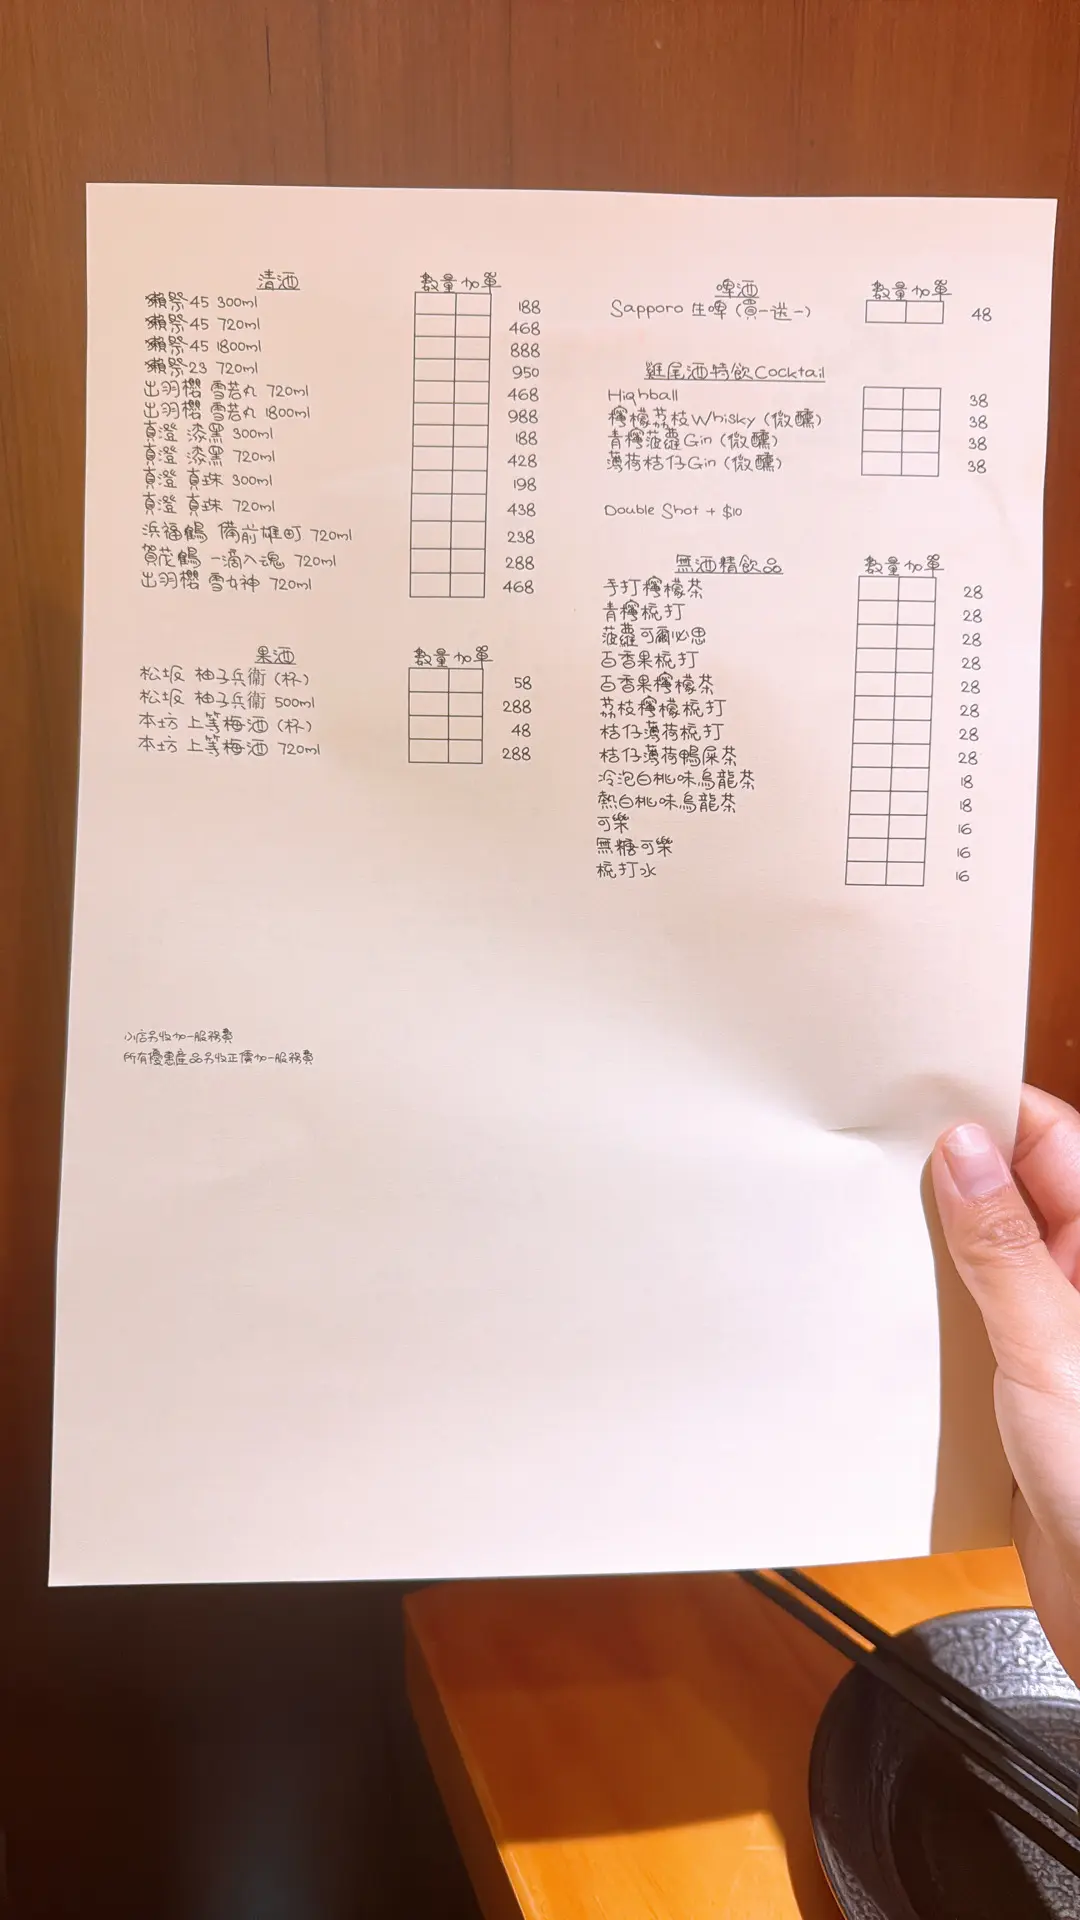 清酒 數量 加單
獺祭45 300ml 188
獺祭45 720ml 468
獺祭45 1800ml 888
獺祭23 720ml 950
出羽櫻 雪若丸 720ml 468
出羽櫻 雪若丸 1800ml 988
真澄 漆黑 300ml 188
真澄 漆黑 720ml 428
真澄 真珠 300ml 198
真澄 真珠 720ml 438
浜福鶴 備前雄町 720ml 238
賀茂鶴 一滴入魂 720ml 288
出羽櫻 雪女神 720ml 468
果酒 數量 加單
松坂 柚子兵衛 (杯) 58
松坂 柚子兵衛 500ml 288
本坊 上等梅酒 (杯) 48
本坊 上等梅酒 720ml 288
小店另收加一服務費
所有優惠產品另收正價加一服務費
啤酒 數量 加單
Sapporo 生啤 (買一送一) 48
雞尾酒特飲Cocktail
Highball 38
檸檬荔枝Whisky (微醺) 38
青檸菠蘿Gin (微醺) 38
薄荷桔仔Gin (微醺) 38
Double Shot + $10
無酒精飲品 數量 加單
手打檸檬茶 28
青檸梳打 28
菠蘿可爾必思 28
百香果梳打 28
百香果檸檬茶 28
荔枝檸檬梳打 28
桔仔薄荷梳打 28
桔仔薄荷鴨屎茶 28
冷泡白桃味烏龍茶 18
熱白桃味烏龍茶 18
可樂 16
無糖可樂 16
梳打水 16